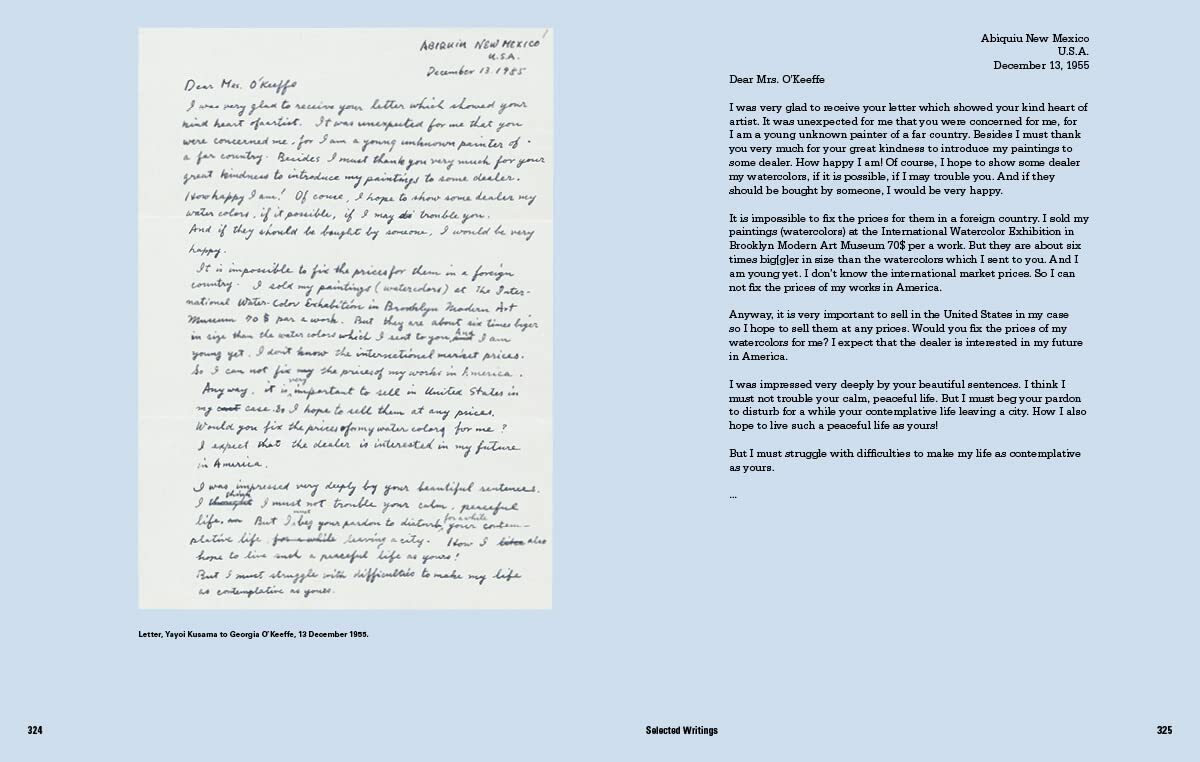 ABIQUIU NEW MEXICO
U.S.A.
December 13. 1955
Dear Mrs. O'Keeffe
I was very glad to receive your letter which showed your
kind heart of artist. It was unexpected for me that you
were concerned me, for I am a young unknown painter of
a far country. Besides I must thank you very much for your
great kindness to introduce my paintings to some dealer.
How happy I am! Of cource, I hope to show some dealer my
water colors, if it possible, if I may trouble you.
And if they should be bought by someone, I would be very
happy.
It is impossible to fix the prices for them in a foreign
country. I sold my paintings (watercolors) at The Inter-
national Water-Color Exhabition in Brooklyn Modern Art
Museum 70 $ par a work. But they are about six times biger
in size than the water colors which I sent to you. And I am
young yet. I don't know the international market prices.
So I can not fix the prices of my works in America.
Anyway, it is very important to sell in United States in
my case. So I hope to sell them at any prices.
Would you fix the prices of my water colors for me?
I expect that the dealer is interested in my future
in America.
I was impressed very deeply by your beautiful sentences.
I think I must not trouble your calm, peaceful
life. But I must beg your pardon to disturb for a while your contem-
plative life leaving a city. How I also
hope to live such a peaceful life as yours!
But I must struggle with difficulties to make my life
as contemplative as yours.
Letter, Yayoi Kusama to Georgia O'Keeffe, 13 December 1955.
324
Abiquiu New Mexico
U.S.A.
December 13, 1955
Dear Mrs. O'Keeffe
I was very glad to receive your letter which showed your kind heart of
artist. It was unexpected for me that you were concerned for me, for
I am a young unknown painter of a far country. Besides I must thank
you very much for your great kindness to introduce my paintings to
some dealer. How happy I am! Of course, I hope to show some dealer
my watercolors, if it is possible, if I may trouble you. And if they
should be bought by someone, I would be very happy.
It is impossible to fix the prices for them in a foreign country. I sold my
paintings (watercolors) at the International Watercolor Exhibition in
Brooklyn Modern Art Museum 70$ per a work. But they are about six
times big[g]er in size than the watercolors which I sent to you. And I
am young yet. I don't know the international market prices. So I can
not fix the prices of my works in America.
Anyway, it is very important to sell in the United States in my case
so I hope to sell them at any prices. Would you fix the prices of my
watercolors for me? I expect that the dealer is interested in my future
in America.
I was impressed very deeply by your beautiful sentences. I think I
must not trouble your calm, peaceful life. But I must beg your pardon
to disturb for a while your contemplative life leaving a city. How I also
hope to live such a peaceful life as yours!
But I must struggle with difficulties to make my life as contemplative
as yours.
...
Selected Writings
325